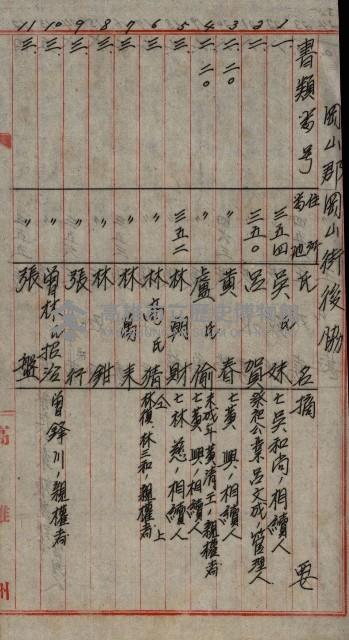 岡山郡岡山街後協
書類番号 住所番地 氏名 摘要
1 一 三五四 吳氏妹 亡吳和尚ノ相續人
2 二 三五〇 呂賀 祭祀公業呂文成ノ管理人
3 二ノ二〇 〃 黃春 亡黃興ノ相續人
4 二ノ二〇 〃 盧氏偷 未成年黃清王ノ親權者 亡黃興ノ相續人
5 三 三五二 林朝財 亡林慈ノ相續人
6 三 〃 林 氏猜 林 林三和ノ親權者 仝上
7 三 〃 林萬來
8 三 〃 林鉗
9 三 〃 張行
10 三 〃 曾林氏招治 曾鐸川ノ親權者
11 三 〃 張盤
高雄州